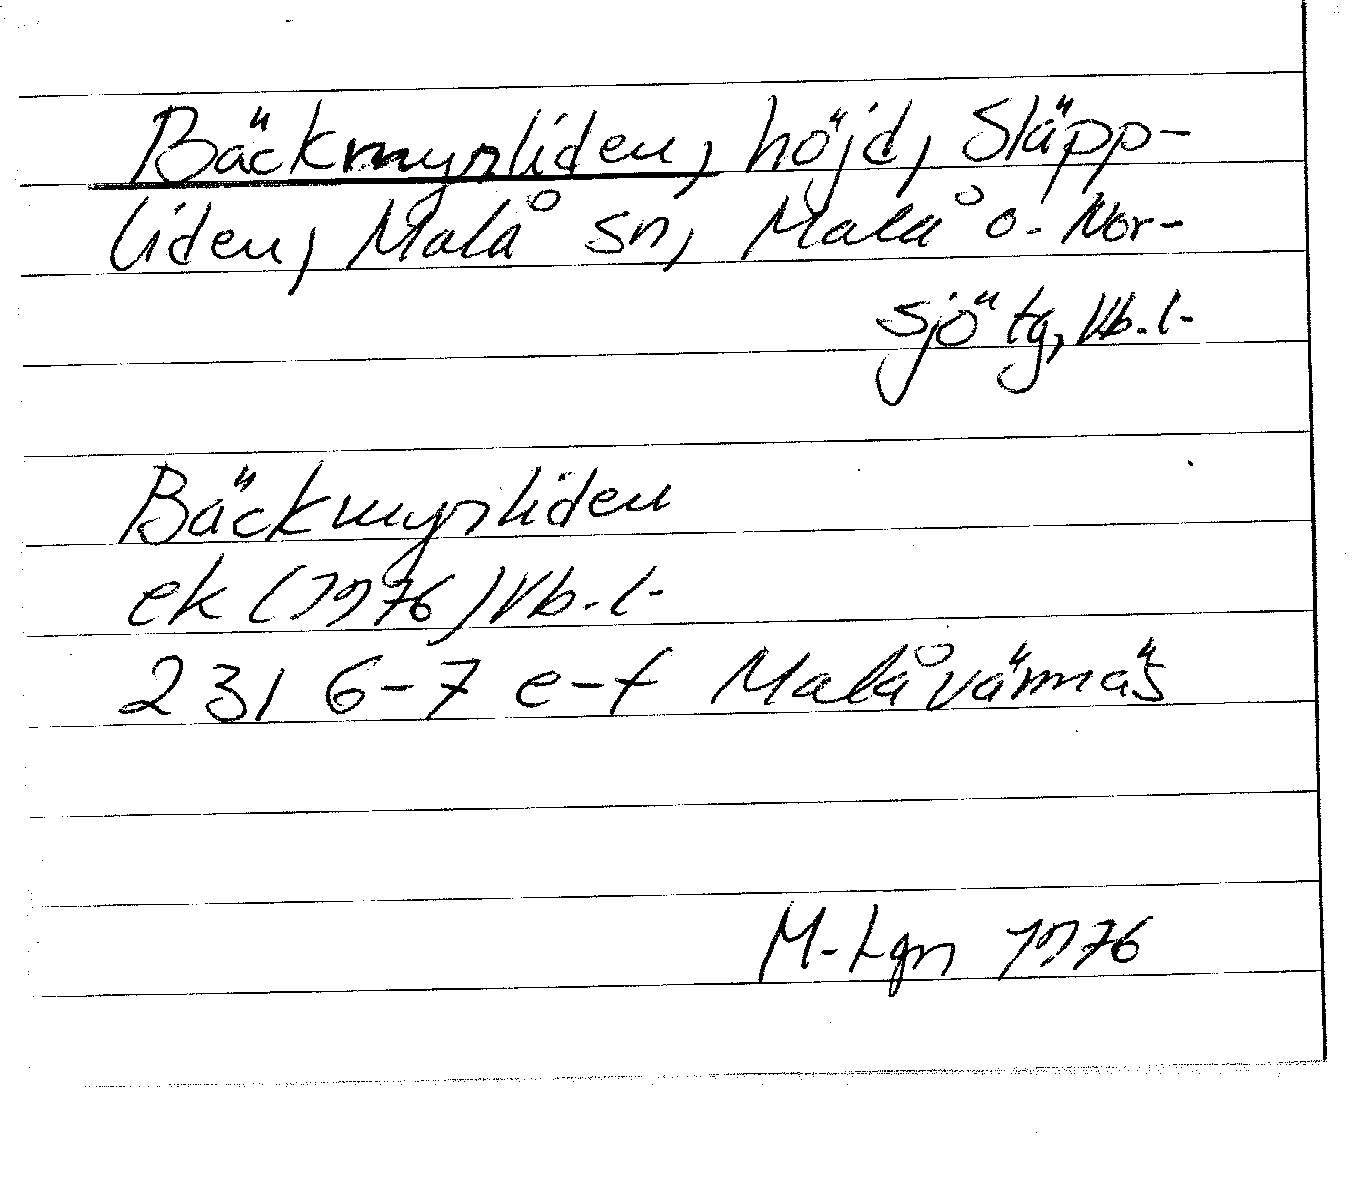 Bäckmyrliden, höjd, Släpp-
liden, Malå sn, Malå o. Nor-
sjö tg, Vb. l.
Bäckmyrliden
ek (1976) Vb. l.
231 6-7 e-f Malåvännäs
M. Lgn 1976